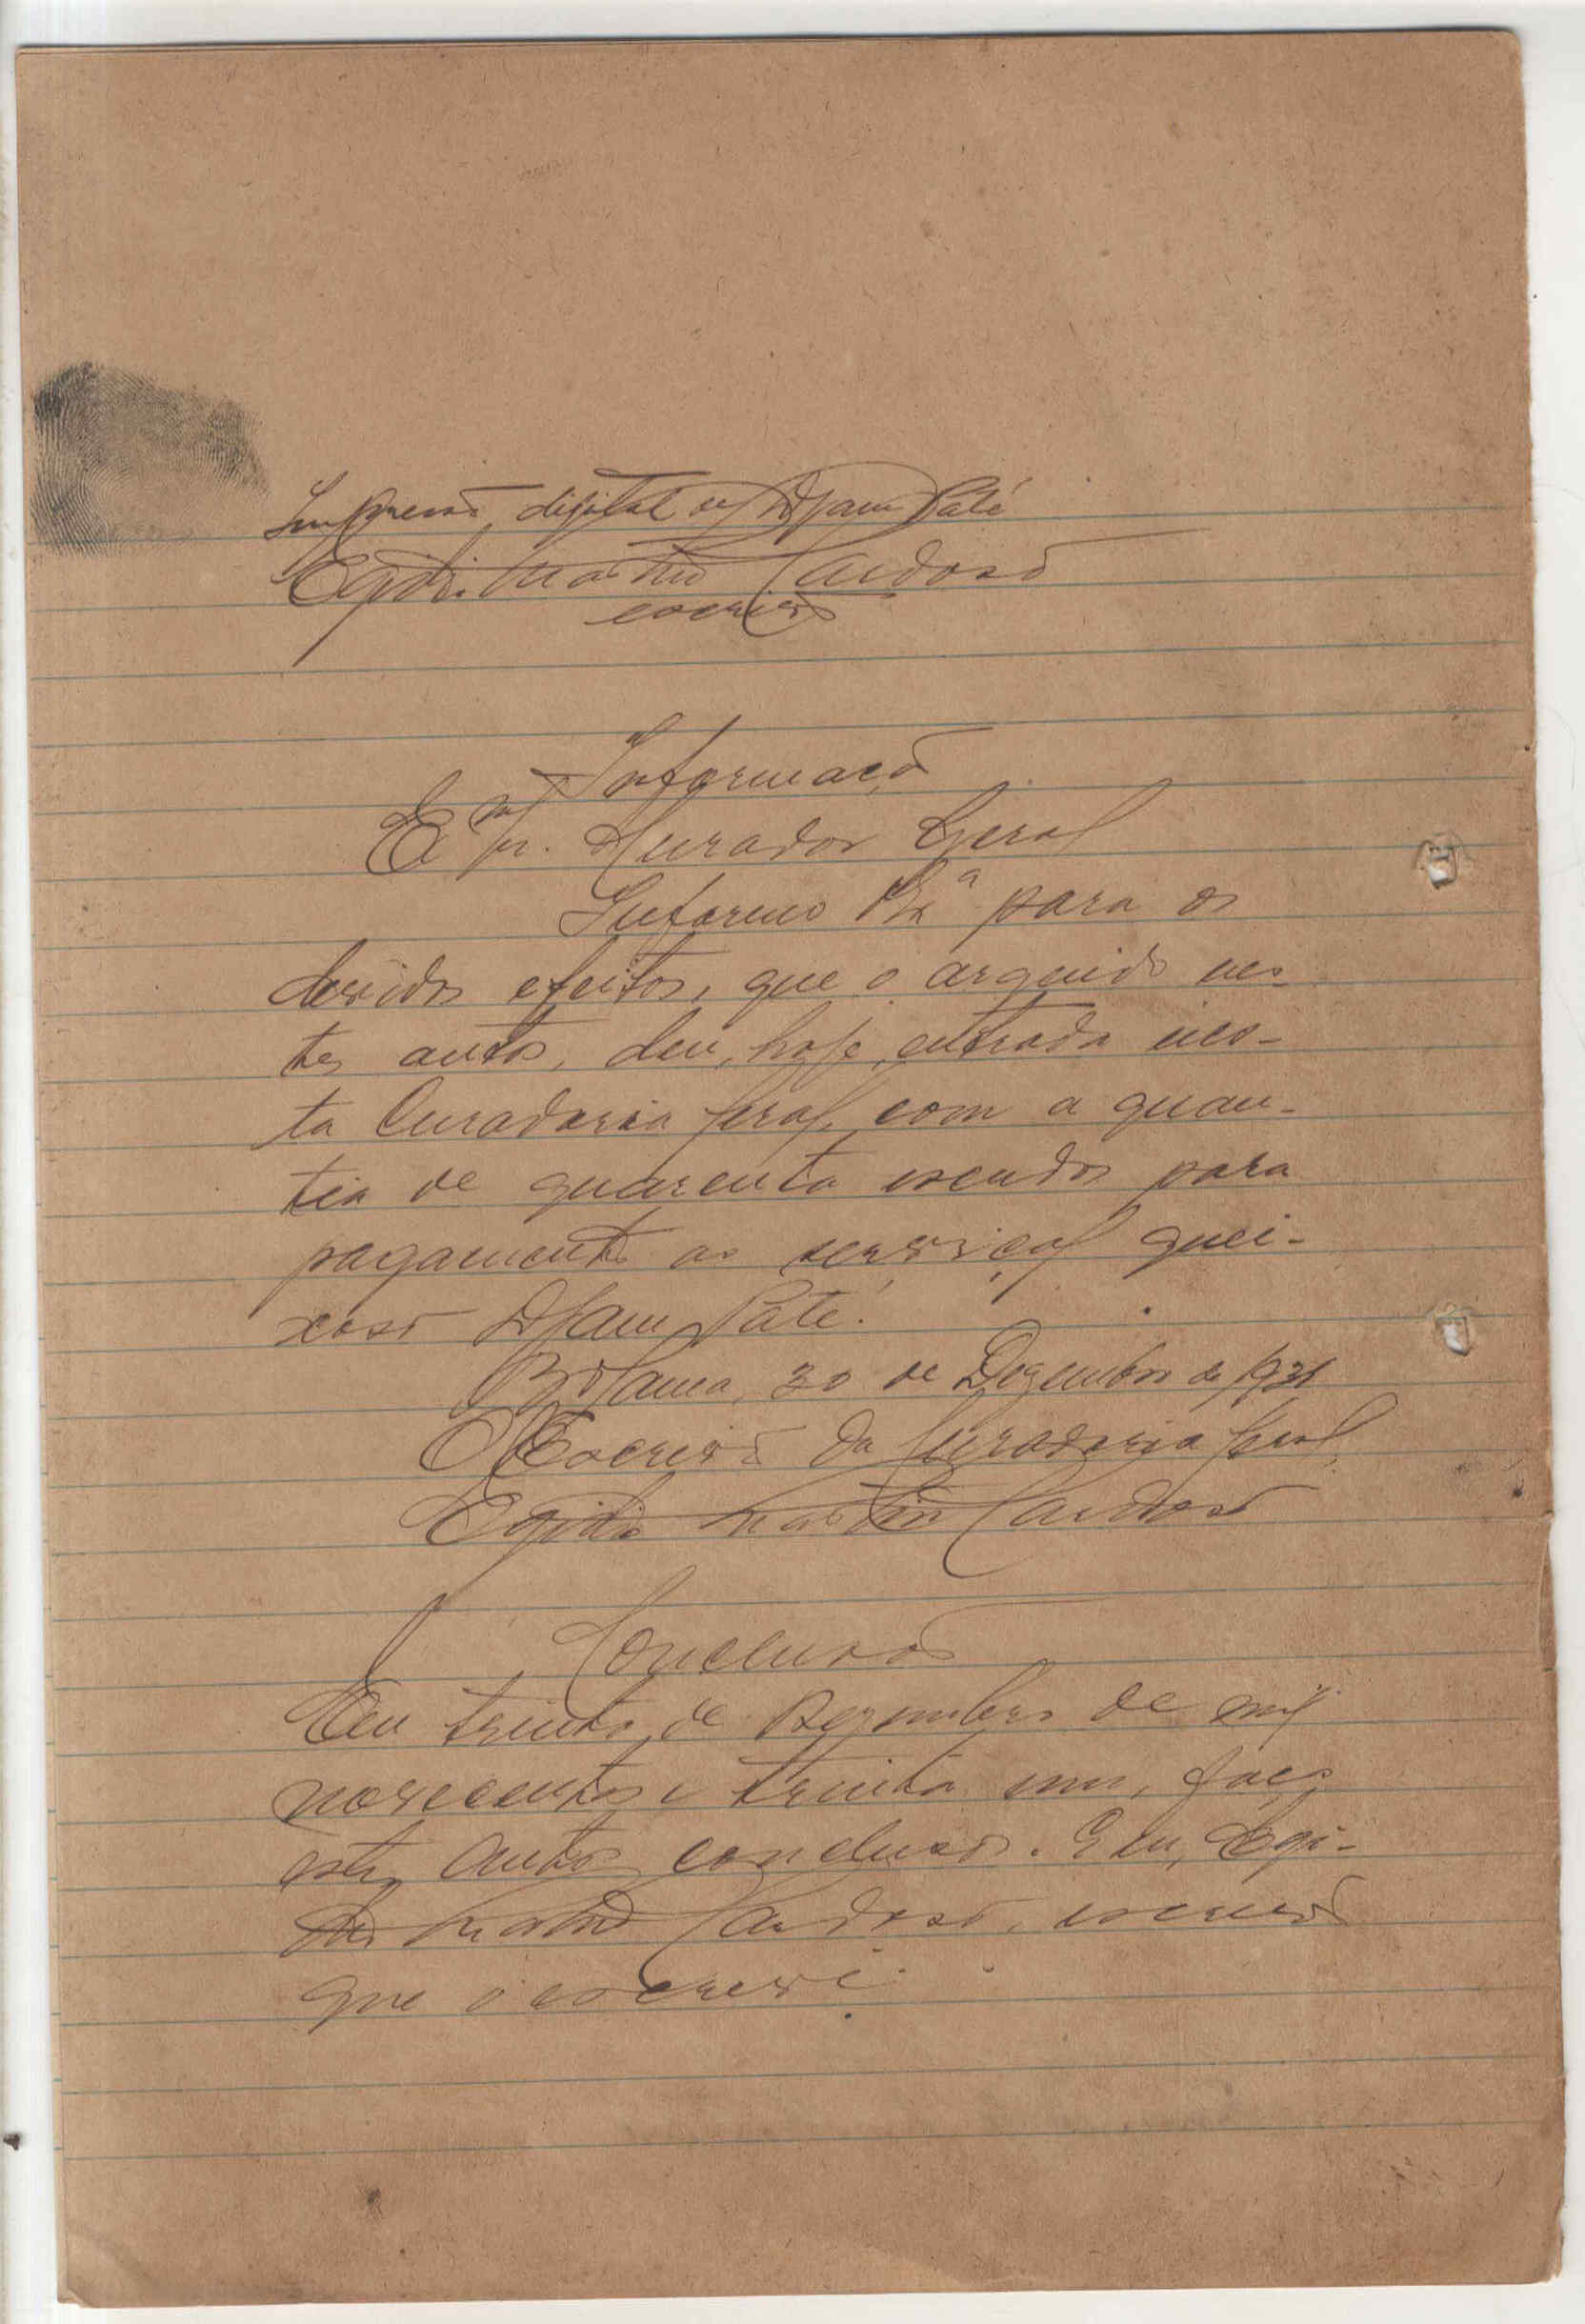 Impressão digital de Djam Paté
Egidio Martins Cardoso
escrivão
Informação
Exmo Sr. Curador Geral
Informo V. Exª para os
devidos efeitos, que o arguido nes-
tes autos, deu, hoje, entrada nes-
ta Curadoria Geral, com a quan-
tia de quarenta escudos para
pagamento ao serviçal quei-
xoso Djam Paté.
Bolama, 30 de Dezembro de 1931
O Escrivão da Curadoria Geral,
Egidio Martins Cardoso
Conclusão
Em trinta de Dezembro de mil
novecentos e trinta um, faço
estes autos conclusos. E eu, Egi-
dio Martins Cardoso, escrivão
que o escrevi.